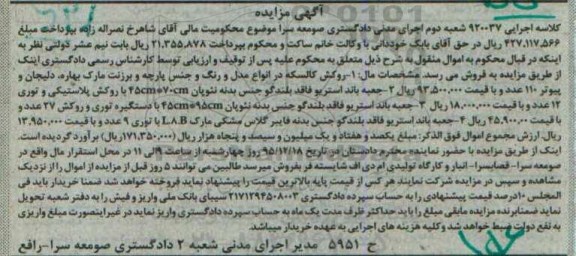 آگهی مزایده
کلاسه اجرایی ۹۲۰۰۳۷ شعبه دوم اجرای مدنی دادگستری صومعه سرا موضوع محکومیت مالی آقای شاهرخ نصراله زاده پرداخت مبلغ
۴۲۷,۱۱۷,۵۶۶ ریال در حق آقای بابک خودداتی با وکالت خانم ساکت و محکوم بپرداخت ۲۱,۳۵۵,۸۷۸ ریال بابت نیم عشر دولتی نظر به
اینکه در قبال محکوم به اموال منقول به شرح ذیل متعلق به محکوم علیه پس از توقیف و ارزیابی توسط کارشناس رسمی دادگستری اینک
از طریق مزایده به فروش می رسد. مشخصات مال: ۱-روکش کالسکه در انواع مدل و رنگ و جنس پارچه و برزنت مارک بهاره، دلیجان و
پیوتر ۱۱۰ عدد و با قیمت ۹۳,۵۰۰,۰۰۰ ریال ۲-جعبه باند استریو فاقد بلندگو جنس بدنه نئوپان ۷۰cm*۴۵cm با روکش پلاستیکی و توری
۱۲ عدد و با قیمت ۱۸,۰۰۰,۰۰۰ ریال ۳-جعبه باند استریو فاقد بلندگو جنس بدنه نئوپان ۹۵cm*۴۵cm با دستگیره توری و روکش ۲۷ عدد و
با قیمت ۴۵,۹۰۰,۰۰۰ ریال ۴-جعبه باند استریو فاقد بلندگو جنس بدنه فایبر گلاس مشکی مارک L.A.B با توری ۹ عدد و با قیمت ۱۳,۹۵۰,۰۰۰
ریال. ارزش مجموع اموال فوق الذکر: مبلغ یکصد و هفتاد و یک میلیون و سیصد و پنجاه هزار ریال (۱۷۱,۳۵۰,۰۰۰ ریال) برآورد گردیده است.
اینک از طریق مزایده با حضور نماینده محترم دادستان در تاریخ ۹۵/۱۲/۱۸ روز چهارشنبه از ساعت ۹ الی ۱۱ در محل استقرار مال واقع در
صومعه سرا- قصابسرا- انبار و کارگاه تولیدی ام دی اف شایسته فر بفروش میرسد طالبین می توانند ۵ روز قبل از مزایده از اموال را از نزدیک
مشاهده و سپس در مزایده شرکت نمایند هر کس از قیمت پایه بالاترین قیمت را پیشنهاد نماید فروخته خواهد شد ضمنا خریدار باید فی
المجلس ۱۰درصد قیمت پیشنهادی را به حساب سپرده دادگستری ۲۱۷۱۲۹۴۵۰۸۰۰۳ سیبای بانک ملی واریز و فیش را به دفتر شعبه تحویل
نماید ضمنا برنده مزایده مابقی مبلغ را باید حداکثر ظرف مدت یک ماه به حساب سپرده دادگستری واریز نماید در غیر اینصورت مبلغ واریزی
به نفع دولت ضبط خواهد شد وکلیه هزینه های اجرایی به عهده خریدار میباشد.
ح ۵۹۵۱ مدیر اجرای مدنی شعبه ۲ دادگستری صومعه سرا-رافع